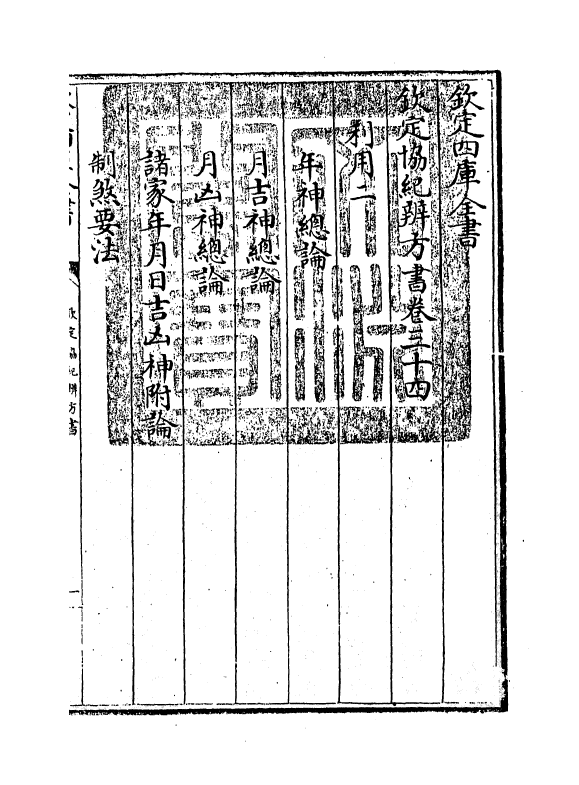 欽定四庫全書
欽定協紀辨方書卷三十四
利用二
年神總論
月吉神總論
月凶神總論
諸家年月日吉凶神附論
制煞要法
欽定協紀辨方書
一